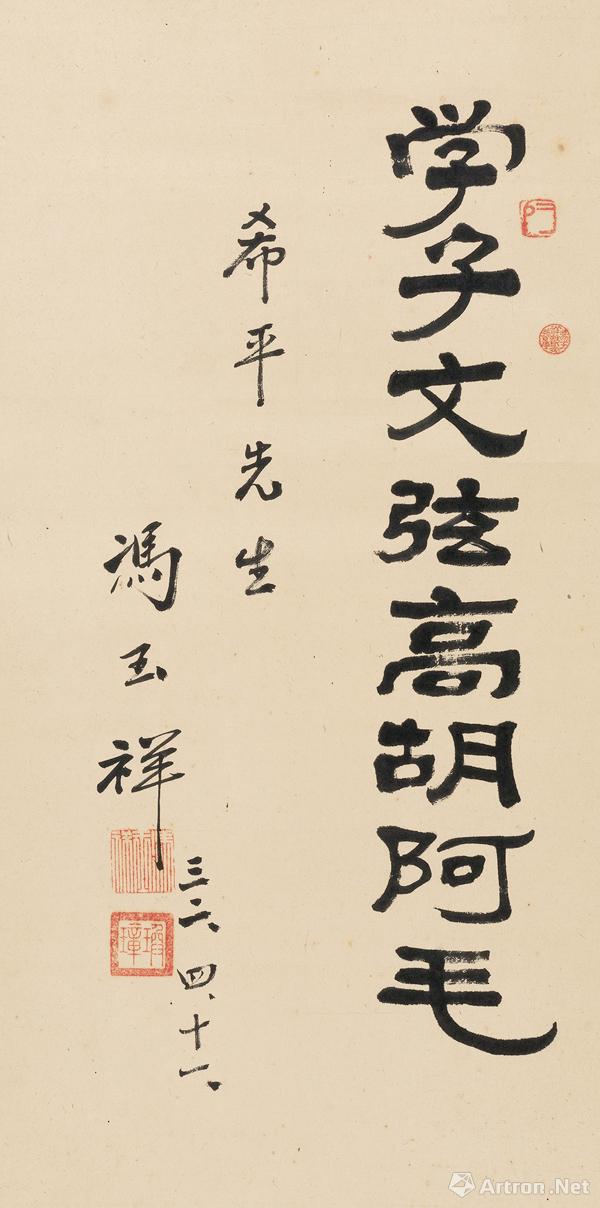 学子文弦高胡阿毛
希平先生
馮玉祥
三六、四、十一、
Artron.Net